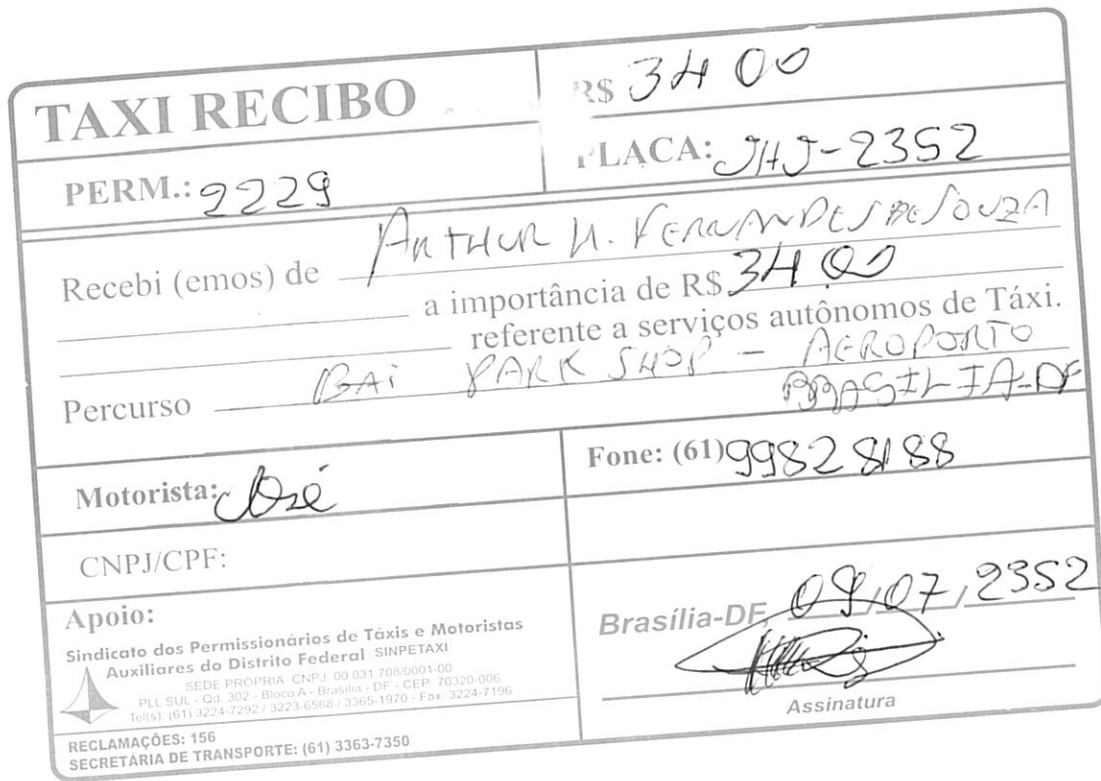 TAXI RECIBO
R$ 34 00
PERM.: 2229
PLACA: JHJ-2352
Recebi (emos) de ARTHUR H. FERNANDES DE SOUZA
a importância de R$ 34 00
referente a serviços autônomos de Táxi.
Percurso PARK SHOP - AEROPORTO
BRASILIA-DF
Motorista: José
Fone: (61) 99828188
CNPJ/CPF:
Apoio:
Sindicato dos Permissionários de Táxis e Motoristas
Auxiliares do Distrito Federal SINPETAXI
SEDE PRÓPRIA CNPJ: 00.031.708/0001-00
PLL SUL - Qd. 302 - Bloco A - Brasília - DF - CEP: 70320-006
Tel(s): (61) 3224-7292 / 3223-6568 / 3365-1970 - Fax: 3224-7196
RECLAMAÇÕES: 156
SECRETÁRIA DE TRANSPORTE: (61) 3363-7350
Brasília-DF, 09/07/2352
Assinatura